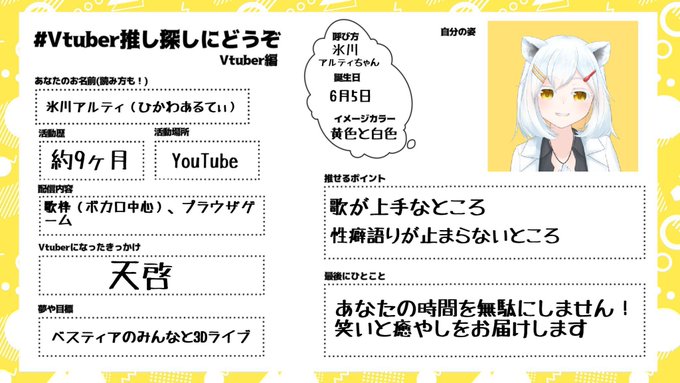 #Vtuber推し探しにどうぞ
Vtuber編
あなたのお名前(読み方も！)
氷川アルティ（ひかわあるてぃ）
活動歴
約9ヶ月
活動場所
YouTube
配信内容
歌枠（ボカロ中心）、ブラウザゲ
ーム
Vtuberになったきっかけ
天啓
夢や目標
ベスティアのみんなと3Dライブ
呼び方
氷川
アルティちゃん
誕生日
6月5日
イメージカラー
黄色と白色
自分の姿
推せるポイント
歌が上手なところ
性癖語りが止まらないところ
最後にひとこと
あなたの時間を無駄にしません！
笑いと癒やしをお届けします